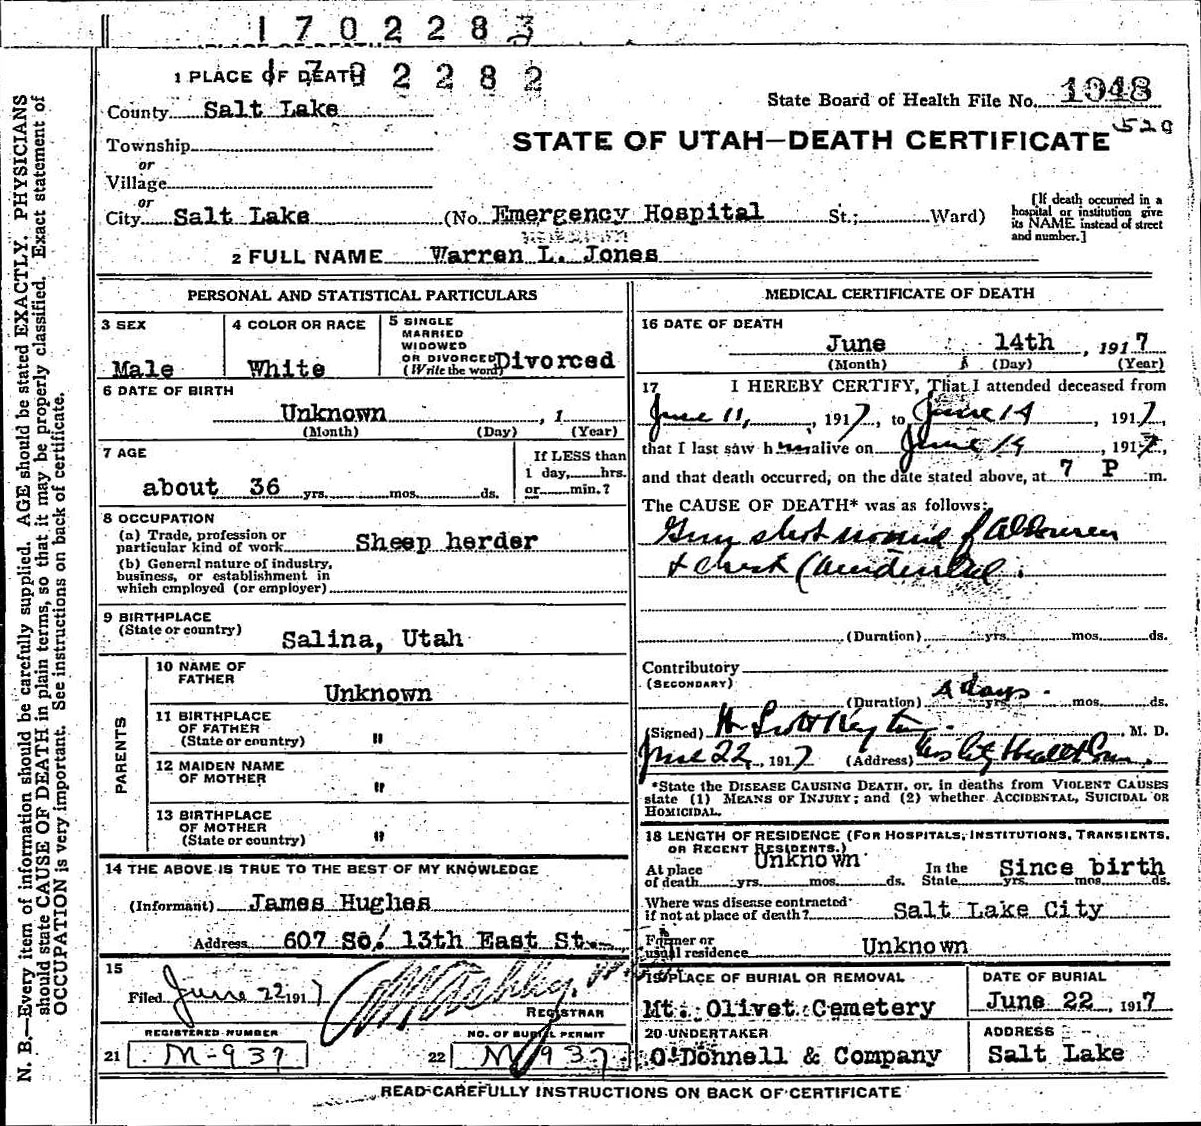 1702283
PLACE OF DEATH
1702282
1 PLACE OF DEATH
County Salt Lake
State Board of Health File No. 1048
529
STATE OF UTAH—DEATH CERTIFICATE
Township
or
Village
or
City Salt Lake (No. Emergency Hospital St.; Ward)
[If death occurred in a hospital or institution give its NAME instead of street and number.]
2 FULL NAME Warren L. Jones
PERSONAL AND STATISTICAL PARTICULARS
3 SEX
Male
4 COLOR OR RACE
White
5 SINGLE
MARRIED
WIDOWED
OR DIVORCED
(Write the word) Divorced
6 DATE OF BIRTH
Unknown , 1
(Month) (Day) (Year)
7 AGE
about 36 yrs. mos. ds.
If LESS than
1 day, hrs.
or min.?
8 OCCUPATION
(a) Trade, profession or
particular kind of work Sheep herder
(b) General nature of industry,
business, or establishment in
which employed (or employer)
9 BIRTHPLACE
(State or country) Salina, Utah
PARENTS
10 NAME OF
FATHER
Unknown
11 BIRTHPLACE
OF FATHER
(State or country) "
12 MAIDEN NAME
OF MOTHER "
13 BIRTHPLACE
OF MOTHER
(State or country) "
14 THE ABOVE IS TRUE TO THE BEST OF MY KNOWLEDGE
(Informant) James Hughes
Address 607 So. 13th East St.
15
Filed June 22 1917
REGISTRAR
REGISTERED NUMBER
21 M-937
NO. OF BURIAL PERMIT
22 M 937
MEDICAL CERTIFICATE OF DEATH
16 DATE OF DEATH
June 14th , 1917
(Month) (Day) (Year)
17 I HEREBY CERTIFY, That I attended deceased from
June 11, , 1917, to June 14 , 1917,
that I last saw him alive on June 14 , 1917,
and that death occurred, on the date stated above, at 7 P m.
The CAUSE OF DEATH* was as follows:
Gun shot wound of abdomen
& chest (accidental.
(Duration) yrs. mos. ds.
Contributory
(SECONDARY)
(Duration) 4 days. yrs. mos. ds.
(Signed) H , M. D.
June 22, 1917 (Address)
*State the DISEASE CAUSING DEATH, or, in deaths from VIOLENT CAUSES
state (1) MEANS OF INJURY; and (2) whether ACCIDENTAL, SUICIDAL OR
HOMICIDAL.
18 LENGTH OF RESIDENCE (FOR HOSPITALS, INSTITUTIONS, TRANSIENTS,
OR RECENT RESIDENTS.)
At place
of death Unknown yrs. mos. ds.
In the
State Since birth yrs. mos. ds.
Where was disease contracted
if not at place of death? Salt Lake City
Former or
usual residence Unknown
19 PLACE OF BURIAL OR REMOVAL
Mt. Olivet Cemetery
DATE OF BURIAL
June 22 , 1917
20 UNDERTAKER
O'Donnell & Company
ADDRESS
Salt Lake
READ CAREFULLY INSTRUCTIONS ON BACK OF CERTIFICATE
N. B.—Every item of information should be carefully supplied. AGE should be stated EXACTLY. PHYSICIANS
should state CAUSE OF DEATH in plain terms, so that it may be properly classified. Exact statement of
OCCUPATION is very important. See instructions on back of certificate.